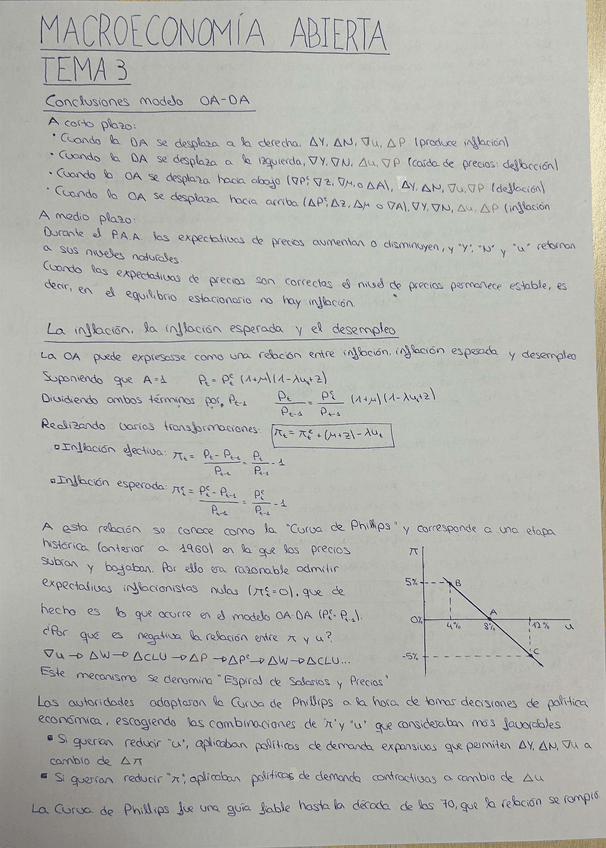 MACROECONOMÍA ABIERTA
TEMA 3
Conclusiones modelo OA-DA
A corto plazo:
• Cuando la DA se desplaza a la derecha, ΔY, ΔN, ∇u, ΔP (produce inflación)
• Cuando la DA se desplaza a la izquierda, ∇Y, ∇N, Δu, ∇P (caída de precios: deflacción)
• Cuando la OA se desplaza hacia abajo (∇Pᵉ, ∇z, ∇μ, o ΔA), ΔY, ΔN, ∇u, ∇P (deflación)
• Cuando la OA se desplaza hacia arriba (ΔPᵉ, Δz, Δμ o ∇A), ∇Y, ∇N, Δu, ΔP (inflación
A medio plazo:
Durante el P.A.A. las expectativas de precios aumentan o disminuyen, y "Y", "N" y "u" retornan
a sus niveles naturales.
Cuando las expectativas de precios son correctas el nivel de precios permanece estable, es
decir, en el equilibrio estacionario no hay inflación.
La inflación, la inflación esperada y el desempleo
La OA puede expresarse como una relación entre inflación, inflación esperada y desempleo
Suponiendo que A=1 Pt = Pᵉt (1+μ)(1-λut+z)
Dividiendo ambos términos por Pt-1 Pt/Pt-1 = Pᵉt/Pt-1 (1+μ)(1-λut+z)
Realizando varias transformaciones: πt = πᵉt + (μ+z) - λut
Inflación efectiva: πt = (Pt - Pt-1)/Pt-1 = Pt/Pt-1 - 1
Inflación esperada: πᵉt = (Pᵉt - Pt-1)/Pt-1 = Pᵉt/Pt-1 - 1
A esta relación se conoce como la "Curva de Phillips" y corresponde a una etapa
histórica (anterior a 1960) en la que los precios
subían y bajaban. Por ello era razonable admitir
expectativas inflacionistas nulas (πᵉt=0), que de
hecho es lo que ocurre en el modelo OA-DA (Pᵉt=Pt-1).
¿Por qué es negativa la relación entre π y u?
∇u → ΔW → ΔCLU → ΔP → ΔPᵉ → ΔW → ΔCLU...
Este mecanismo se denomina "Espiral de Salarios y Precios"
π
5%
B
A
0%
4%
8%
12%
u
-5%
C
Las autoridades adaptaron la Curva de Phillips a la hora de tomar decisiones de política
económica, escogiendo las combinaciones de "π" y "u" que consideraban más favorables
Si querían reducir "u", aplicaban políticas de demanda expansivas que permiten ΔY, ΔN, ∇u a
cambio de Δπ
Si querían reducir "π", aplicaban políticas de demanda contractivas a cambio de Δu
La Curva de Phillips fue una guía fiable hasta la década de los 70, que la relación se rompió